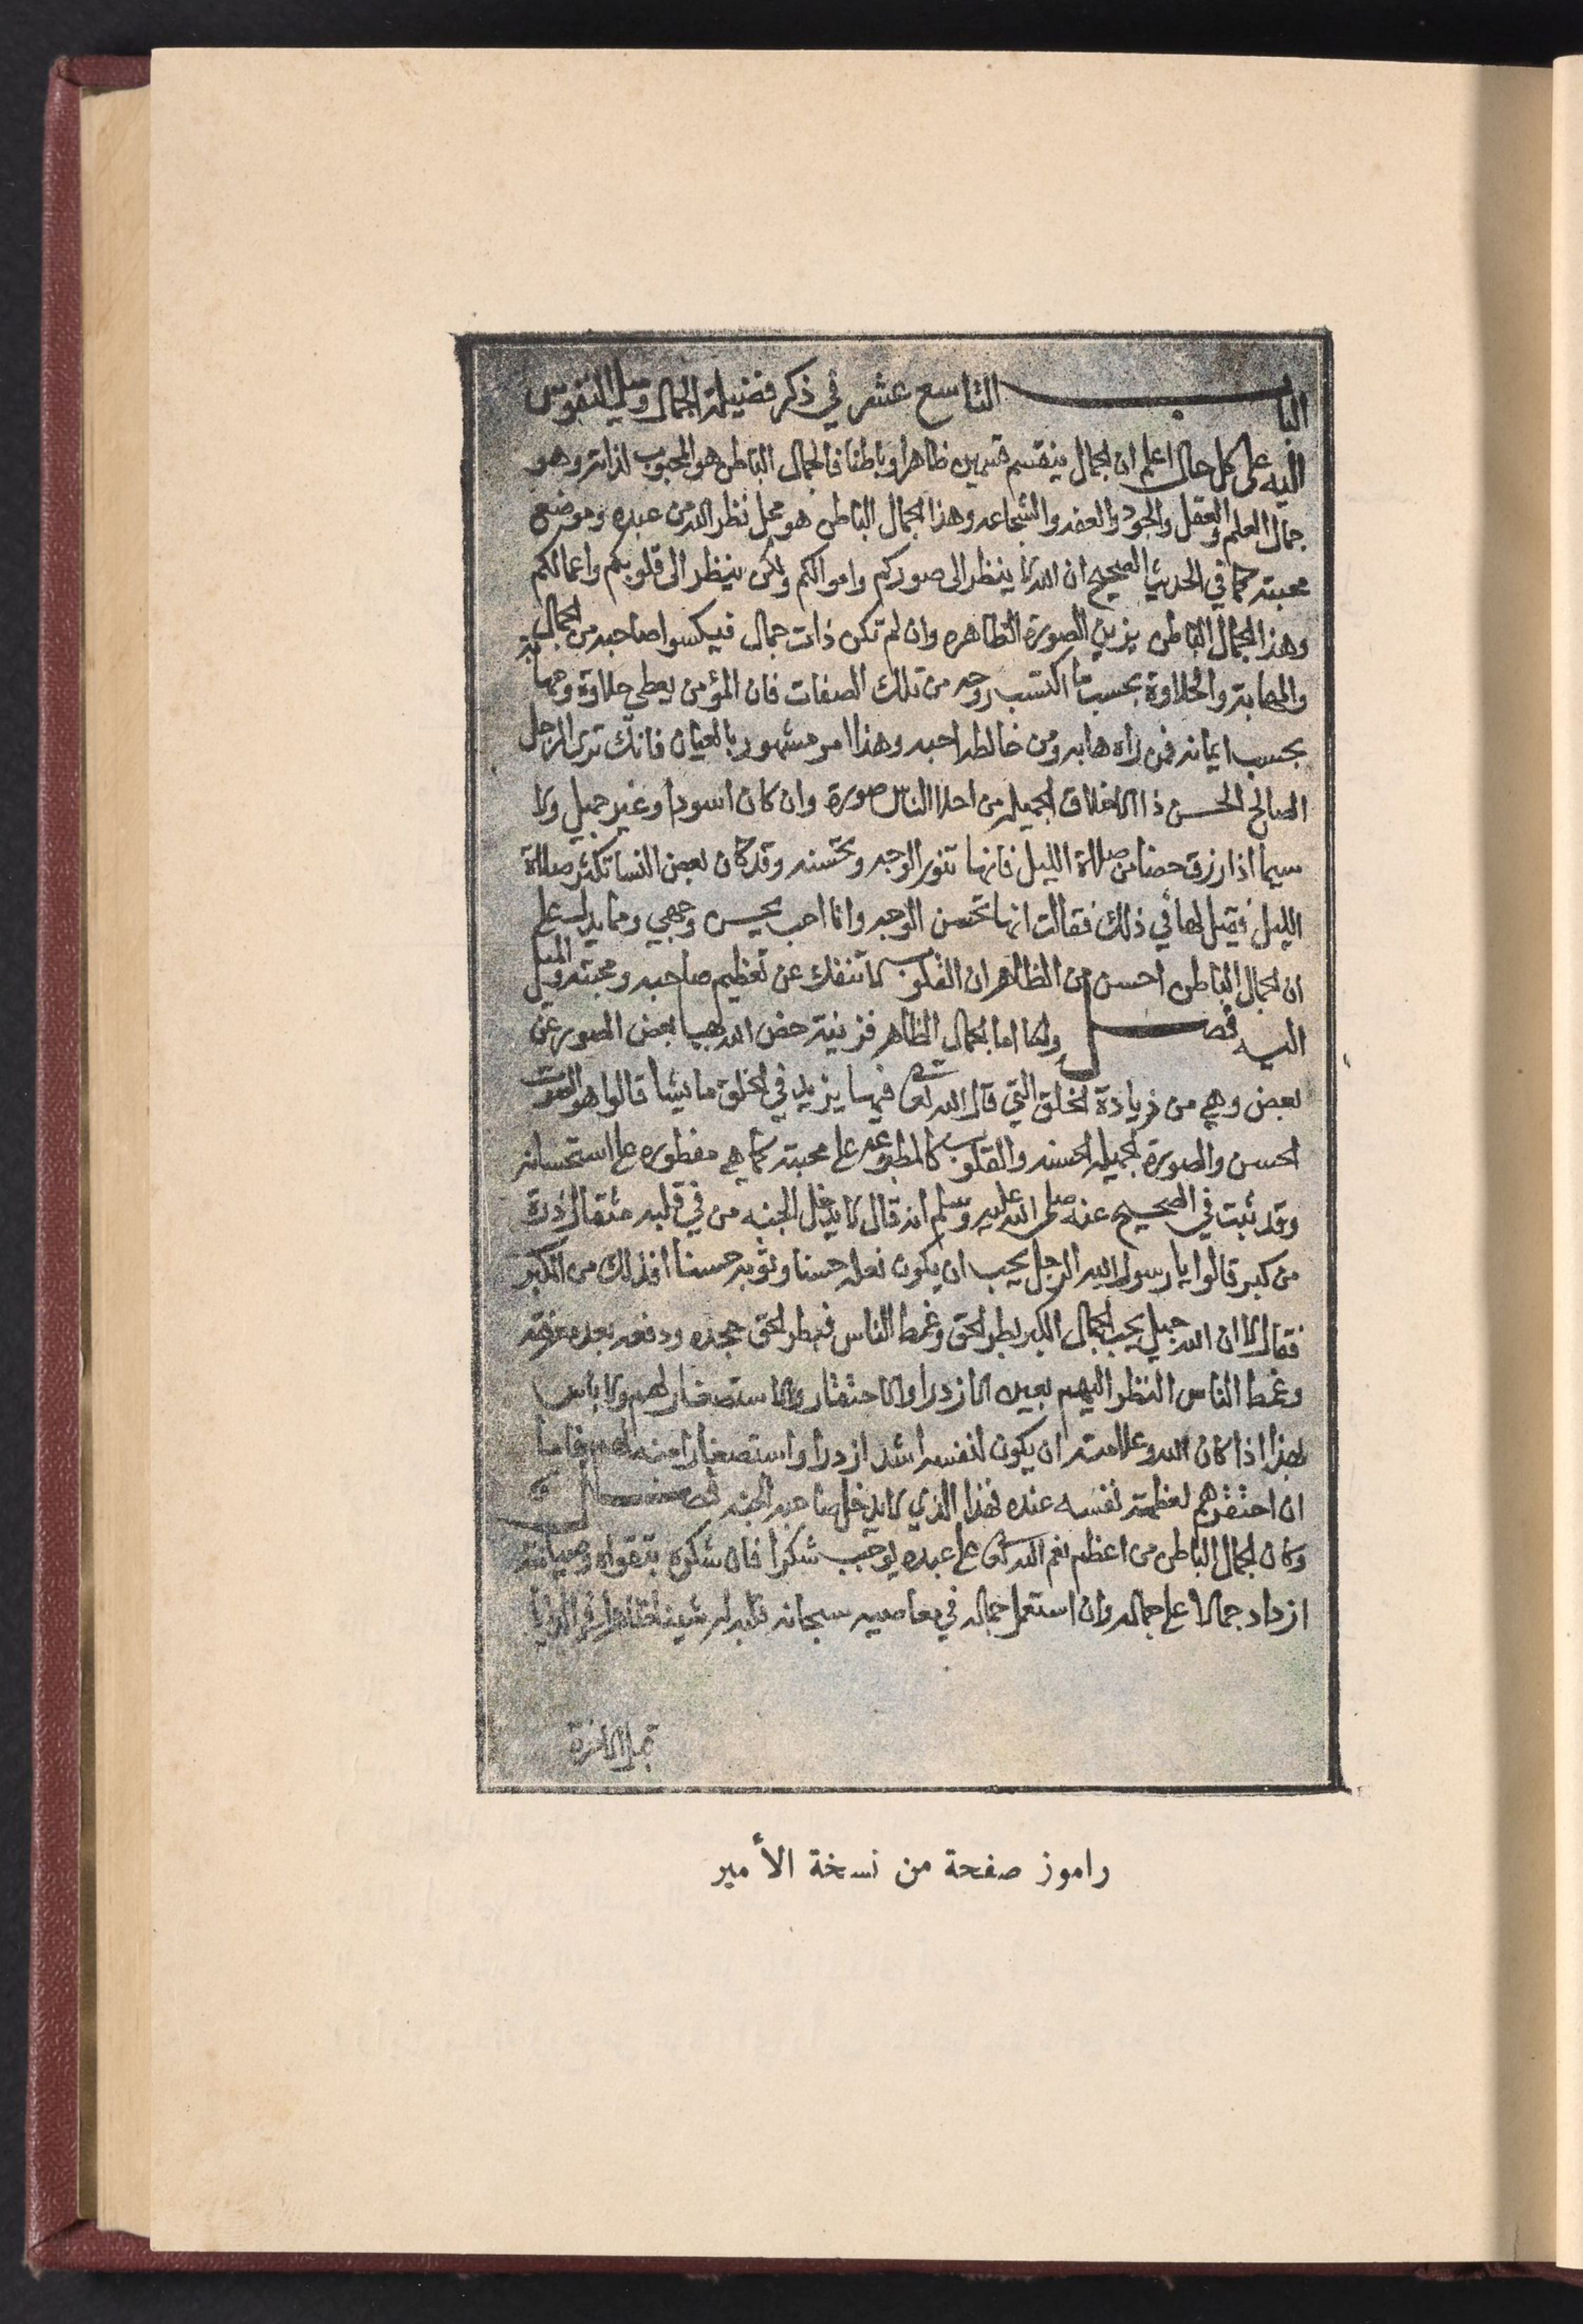 الباب التاسع عشر في ذكر فضيلة الجمال وميل النفوس
اليه على كل حال اعلم ان الجمال ينقسم قسمين ظاهرا وباطنا فالجمال الباطن هو المحبوب لذاته وهو
جمال العلم والعقل والجود والعفه والشجاعه وهذا الجمال الباطن هو محل نظر الله من عبده وموضع
محبته كما في الحديث الصحيح ان الله لا ينظر الى صوركم واموالكم ولكن ينظر الى قلوبكم واعمالكم
وهذا الجمال الباطن يزين الصورة الظاهره وان لم تكن ذات جمال فيكسوا صاحبه من الجمال
والمهابة والحلاوة بحسب ما اكتسب روحه من تلك الصفات فان المؤمن يعطى حلاوة ومهابة
بحسب ايمانه فمن رآه هابه ومن خالطه احبه وهذا امر مشهور بالعيان فانك ترى الرجل
الصالح الحسن ذا الاخلاق الجميله من احلا الناس صورة وان كان اسود او غير جميل ولا
سيما اذا رزق حضا من صلاة الليل فانها تنور الوجه وتحسنه وقد كان بعض النسا تكثر صلاة
الليل فقيل لها في ذلك فقالت انها تحسن الوجه وانا احب يحسن وجهي ومما يدل على
ان الجمال الباطن احسن من الظاهر ان القلوب لا تنفك عن تعظيم صاحبه ومحبته والميل
اليه فصل واما الجمال الظاهر فزينة خص الله بها بعض الصور عن
بعض وهي من زيادة الخلق التي قال الله تعالى فيها يزيد في الخلق ما يشا قالوا هو الصوت
الحسن والصورة الجميله الحسنه والقلوب كالمطبوعه على محبته كما هي مفطوره على استحسانه
وقد ثبت في الصحيح عنه صلى الله عليه وسلم انه قال لا يدخل الجنه من في قلبه مثقال ذرة
من كبر قالوا يا رسول الله الرجل يحب ان يكون نعله حسنا وثوبه حسنا افذلك من الكبر
فقال لا ان الله جميل يحب الجمال الكبر بطر الحق وغمط الناس فبطر الحق جحده ودفعه بعد معرفته
وغمط الناس النظر اليهم بعين الازدرا والاحتقار والاستصغار لهم ولا باس
بهذا اذا كان لله وعلامته ان يكون لنفسه اشد ازدرا واستصغارا منه لهم فاما
ان احتقرهم لعظمة نفسه عنده فهذا الذي لا يدخل صاحبه الجنه فصل
وكان الجمال الباطن من اعظم نعم الله تعالى على عبده يوجب شكرا فان شكره بتقواه وصيانته
ازداد جمالا على جماله وان استعمل جماله في معاصيه سبحانه قلبه له شينا ظاهرا في الدنيا
قبل الاخرة
راموز صفحة من نسخة الأمير